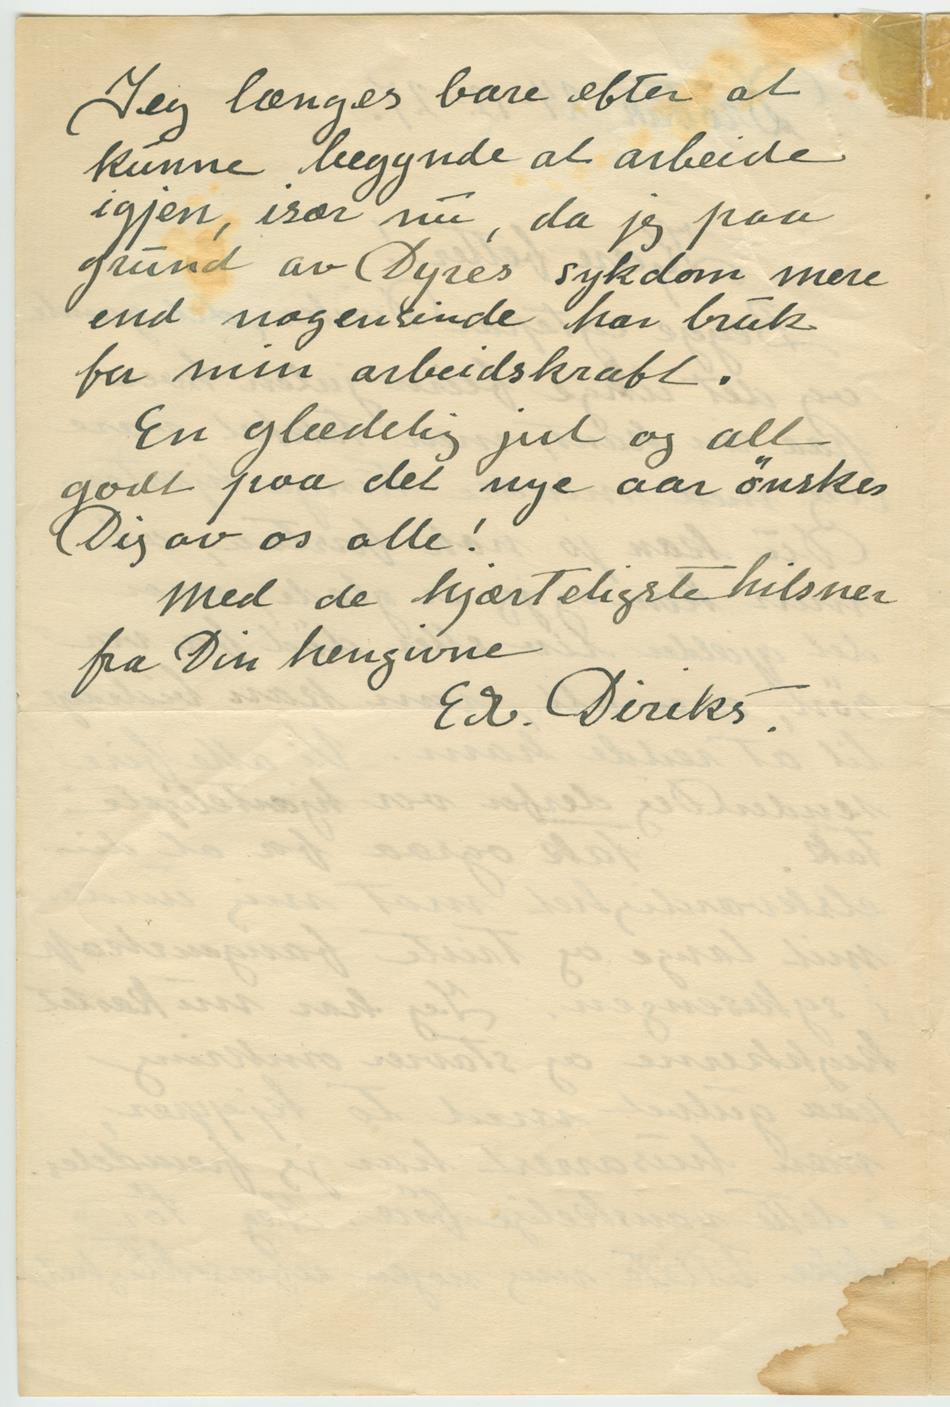 Jeg længes bare efter at
kunne begynde at arbeide
igjen, især nu, da jeg paa
grund av Dyres sykdom mere
end nogensinde har bruk
for min arbeidskraft.
En glædelig jul og alt
godt paa det nye aar önskes
Dig av os alle!
Med de hjærteligste hilsner
fra Din hengivne
Diriks.